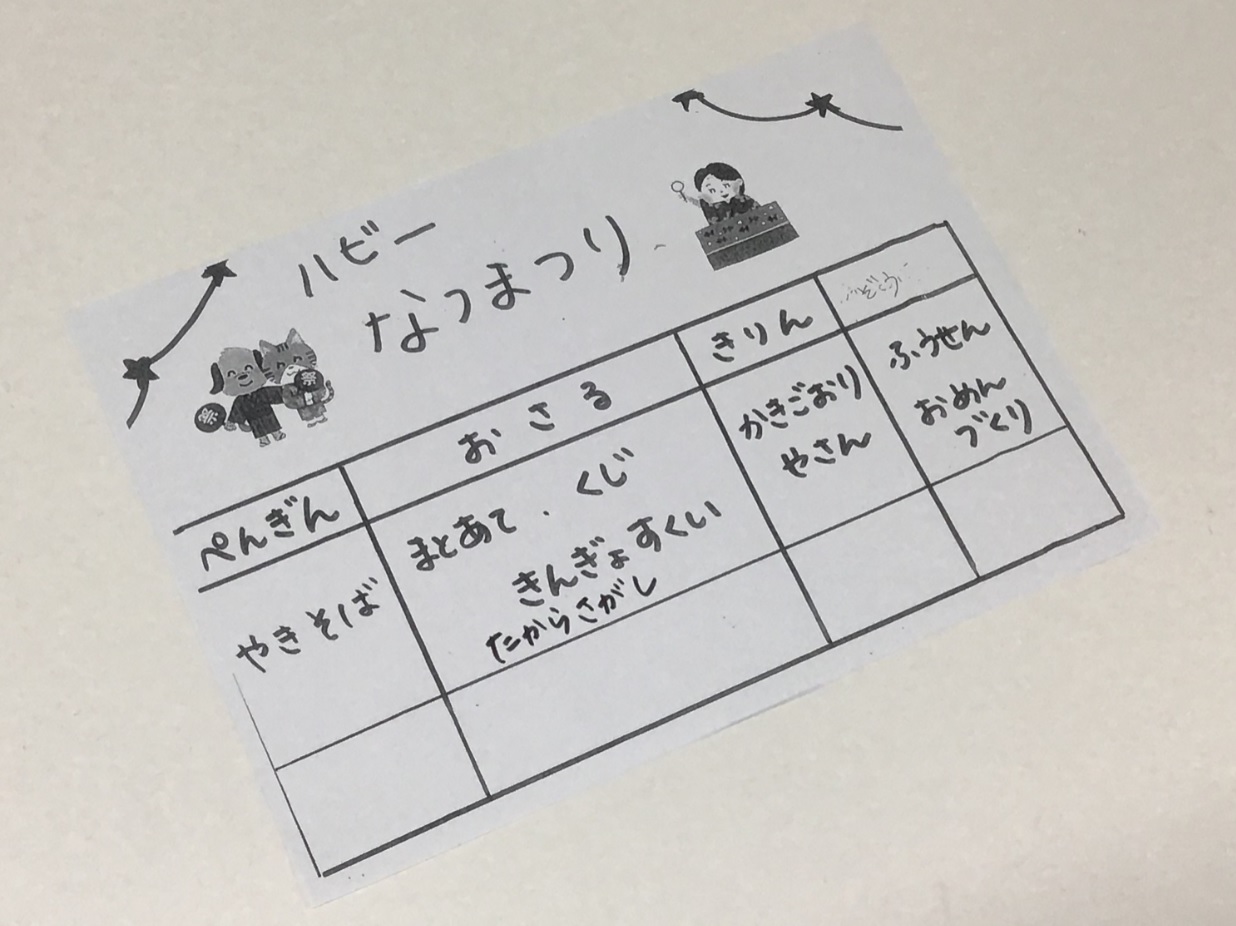 ハビー
なつまつり
ぺんぎん
おさる
きりん
やきそば
まとあて．くじ
きんぎょすくい
たからさがし
かきごおり
やさん
ふうせん
おめん
づくり